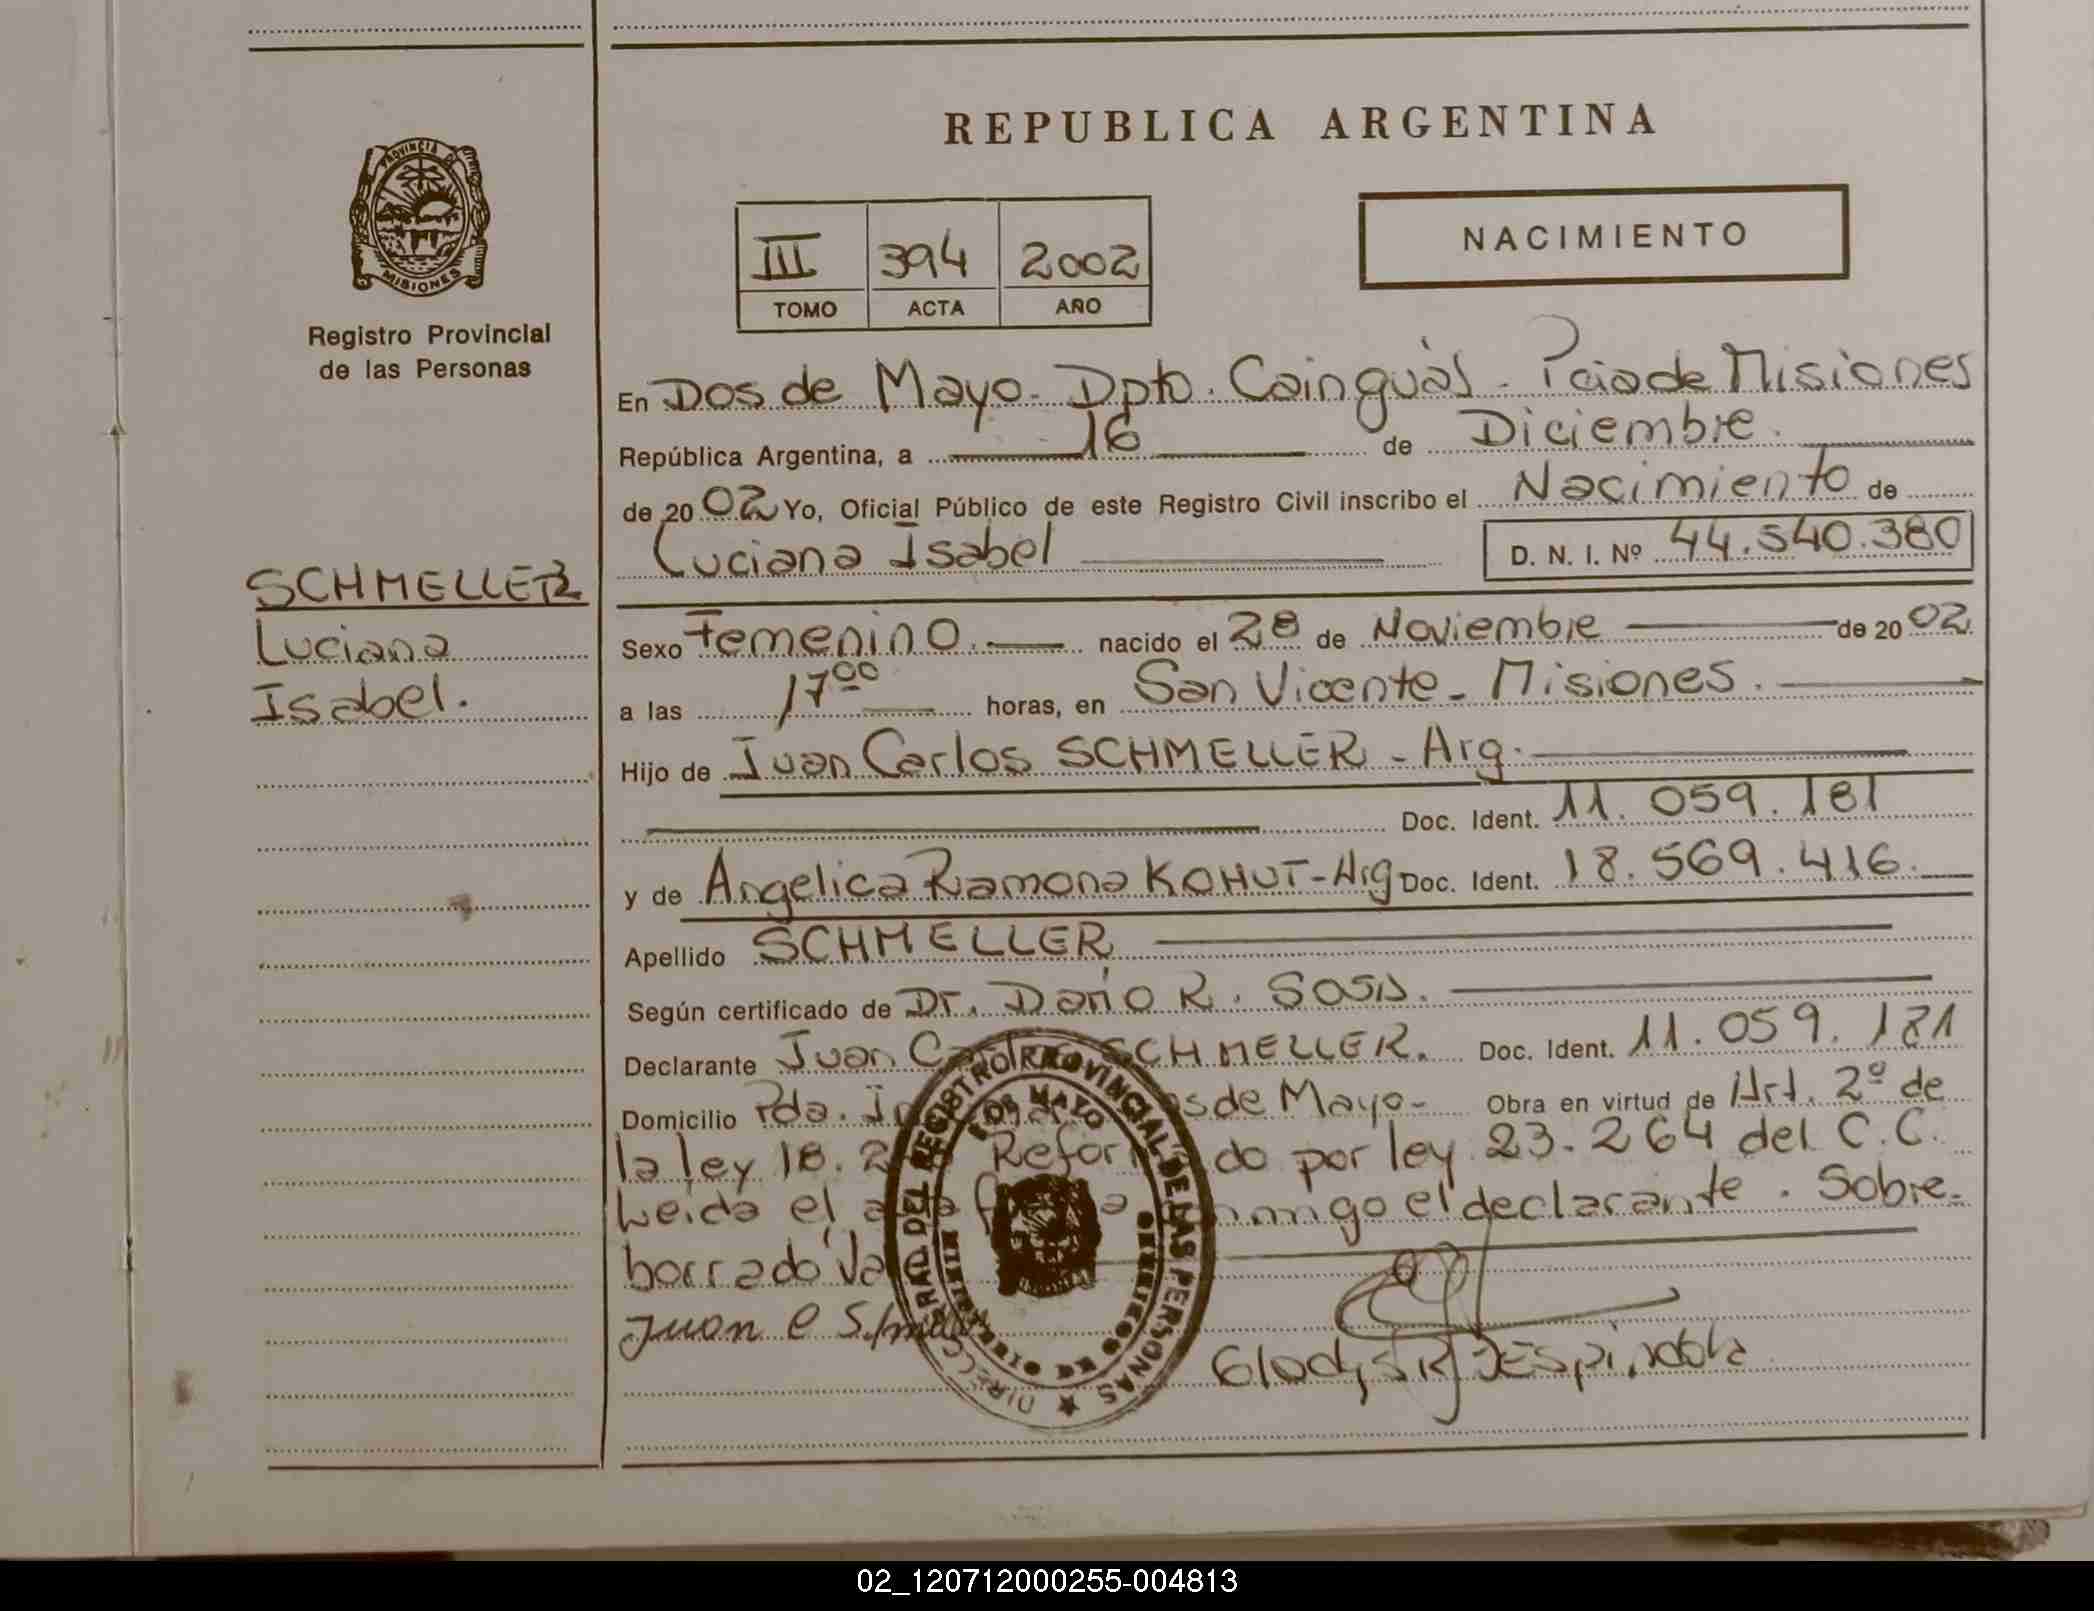 REPUBLICA ARGENTINA
PROVINCIA DE
MISIONES
Registro Provincial
de las Personas
III 394 2002
TOMO ACTA AÑO
NACIMIENTO
En Dos de Mayo - Dpto. Cainguás - Pcia de Misiones
República Argentina, a 16 de Diciembre.
de 2002 Yo, Oficial Público de este Registro Civil inscribo el Nacimiento de
Luciana Isabel D. N. I. Nº 44.540.380
SCHMELLER
Luciana
Isabel.
Sexo Femenino. nacido el 28 de Noviembre de 2002
a las 17 00 horas, en San Vicente - Misiones.
Hijo de Juan Carlos SCHMELLER - Arg.
Doc. Ident. 11.059.181
y de Angelica Ramona KOHUT - Arg Doc. Ident. 18.569.416.
Apellido SCHMELLER
Según certificado de Dr. Dario R. Sosa.
Declarante Juan SCHMELLER. Doc. Ident. 11.059.181
Domicilio Pda. de Mayo - Obra en virtud de Art. 2º de
la ley 18. Reformado por ley 23.264 del C.C.
Leida el declarante. Sobre-
borrado
Juan C
DIRECC GRAL DEL REGISTRO PROVINCIAL DE LAS PERSONAS
DOS MAYO